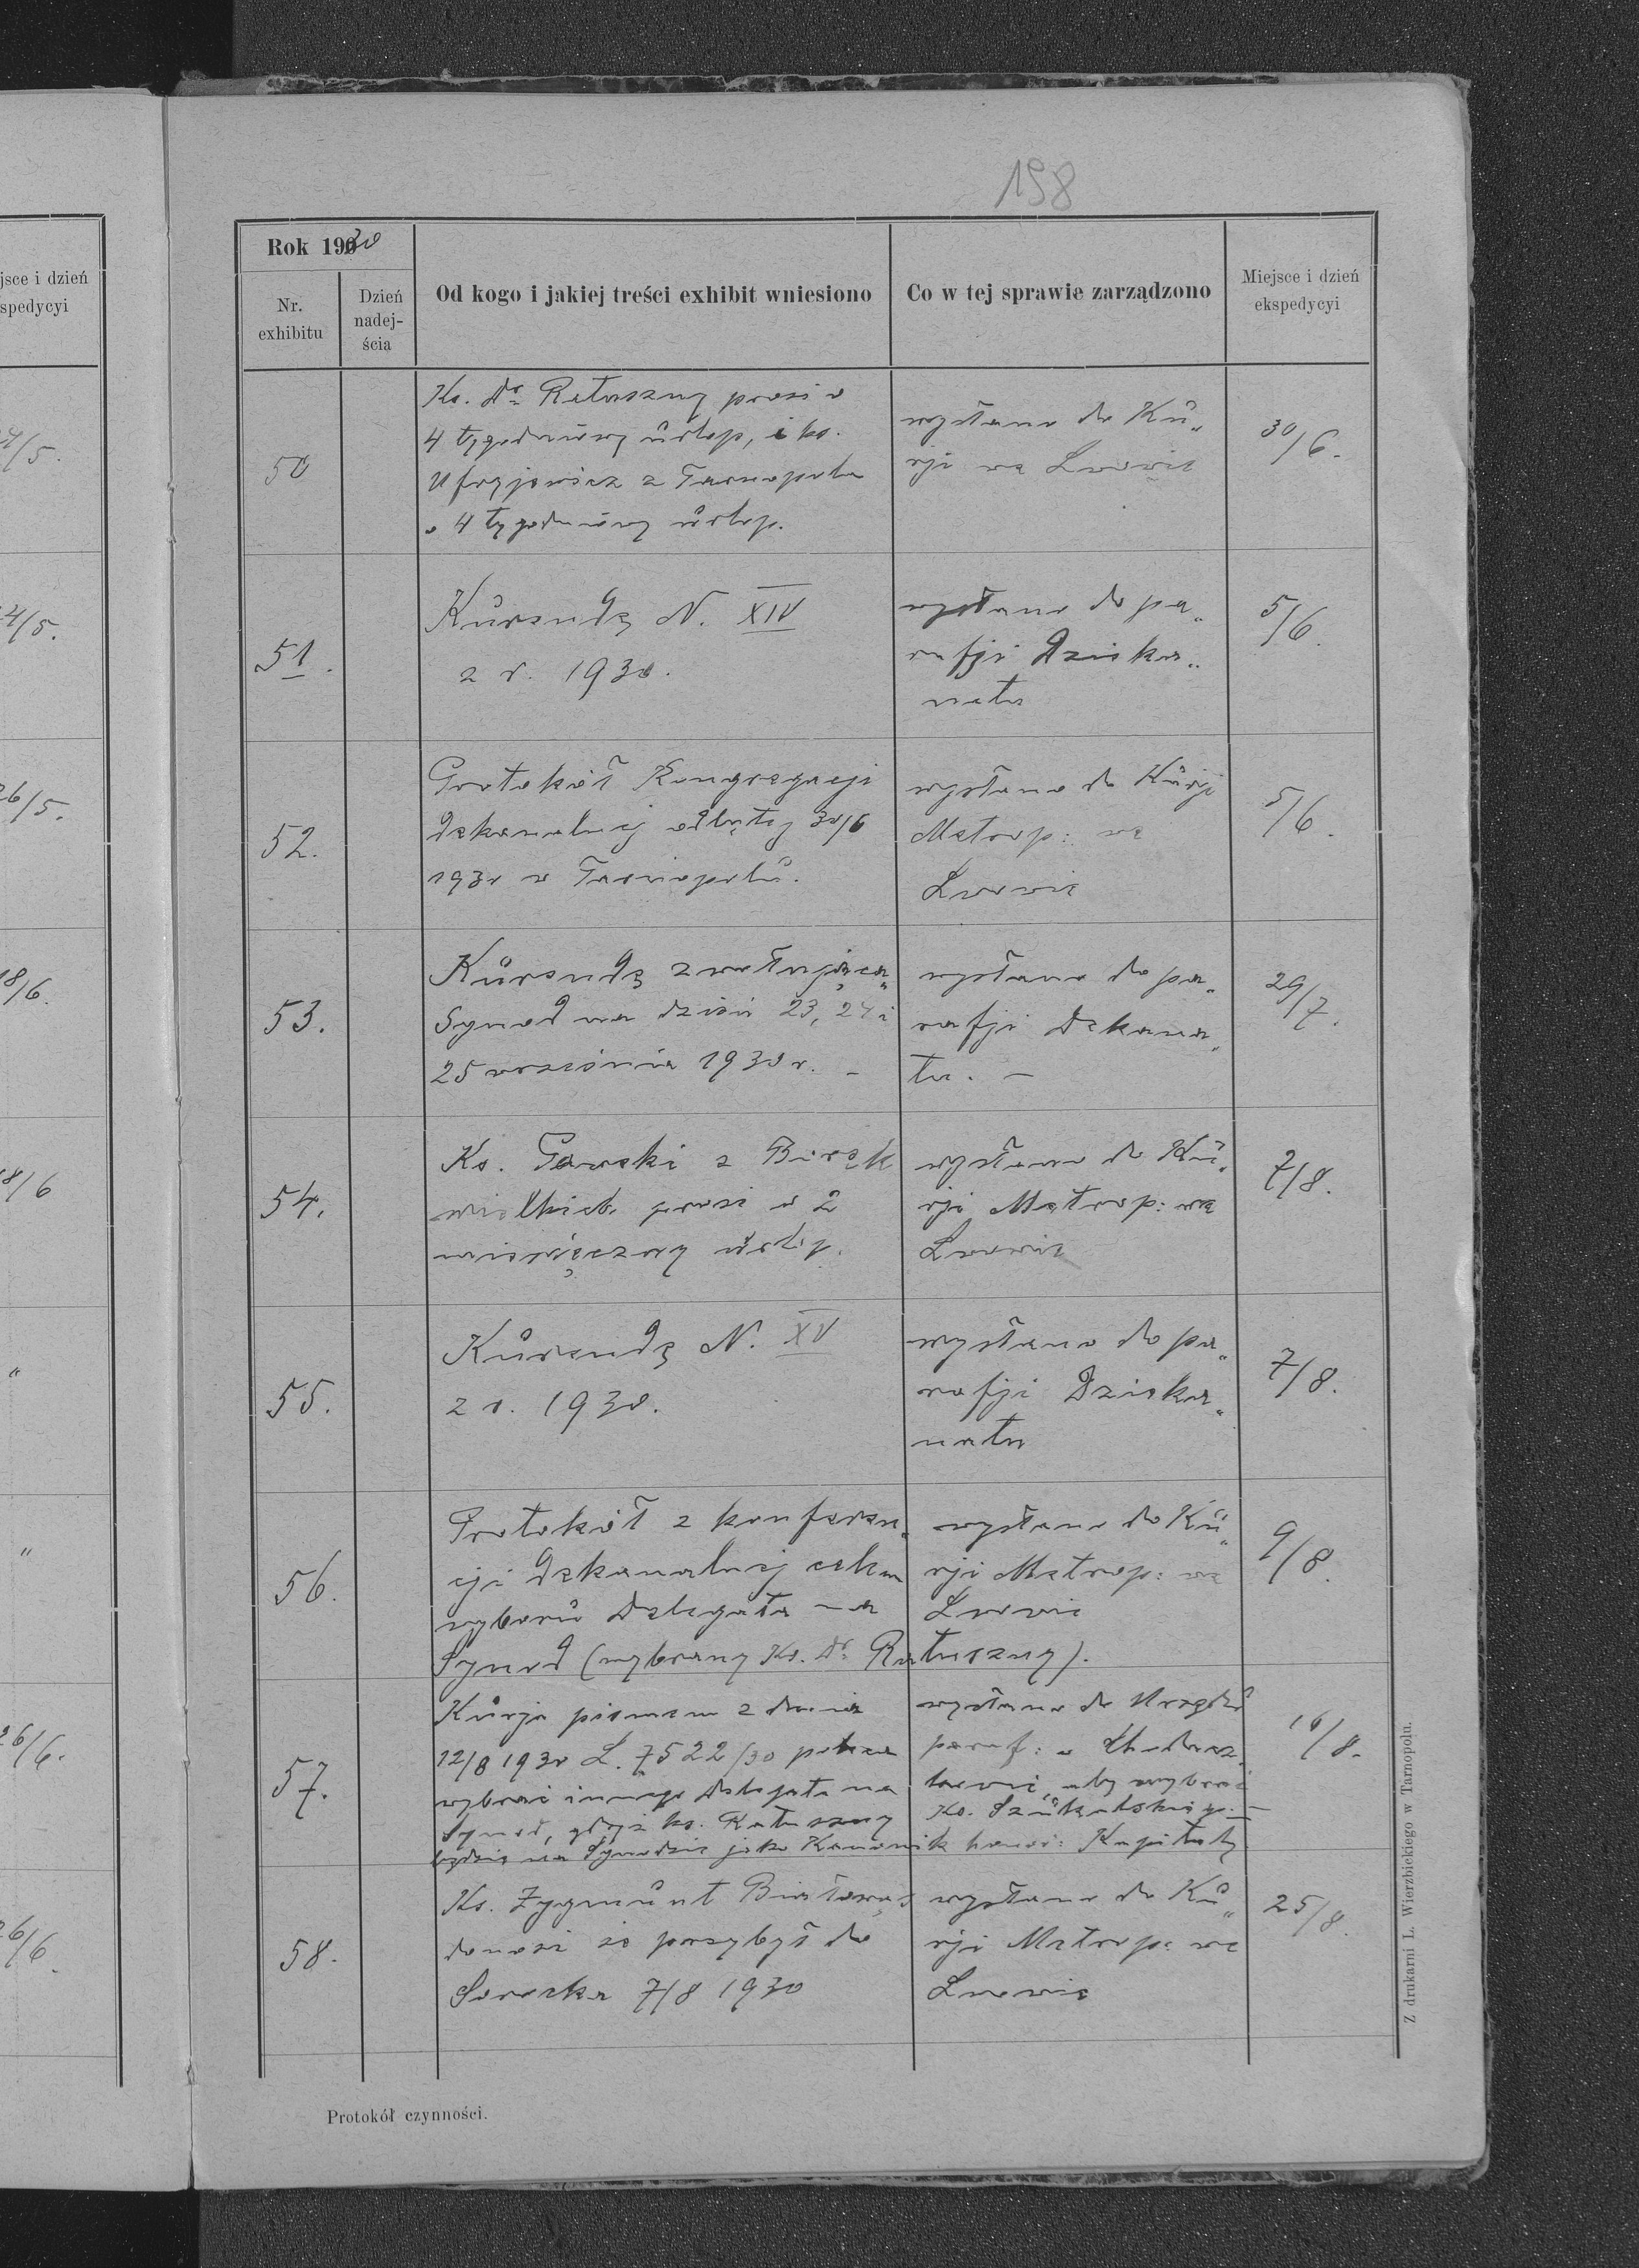 158
jsce i dzień
spedycyi
4/5.
4/5.
26/5.
18/6.
8/6
"
"
26/6.
26/6.
Rok 1930
Nr.
exhibitu
Dzień
nadej-
ścia
Od kogo i jakiej treści exhibit wniesiono
Co w tej sprawie zarządzono
Miejsce i dzień
ekspedycyi
50
Ks. Dr. Ratuszny prosi o
4 tygodniowy urlop, i ks.
z Tarnopola
o 4 tygodniowy urlop.
wysłano do Ku„
rji we Lwowie
30/6.
51.
Kurendę N. XIV
z r. 1930.
wysłano do pa„
rafji Dzieka„
natu
5/6.
52.
Protokół Kongregacji
dekanalnej odbytej 30/6
1930 w Tarnopolu.
wysłano do Kurji
Metrop: we
Lwowie
5/6.
53.
Kurendę zwołującą„
Synod na dzień 23, 24 i
25 września 1930 r. –
wysłano do pa„
rafji Dekana„
tu. –
29/7.
54.
Ks. Gawski z Borek
wielkich prosi o 2
miesięczny urlop.
wysłano do Ku„
rji Metrop: we
Lwowie
7/8.
55.
Kurendę N. XV
z r. 1930.
wysłano do pa„
rafji Dzieka„
natu
7/8.
56.
Protokół z konferen„
cji Dekanalnej celem
wyboru Delegata na
Synod (wybrany Ks. Dr. Ratuszny).
wysłano do Ku„
rji Metrop: we
Lwowie
9/8.
57.
Kurja pismem z dnia
12/8 1930 L. 7522/30 poleca
wybrać innego delegata na
Synod, gdyż ks. Ratuszny
będzie na Synodzie jako Kanonik honor: Kapituły
wysłano do Urzędu
paraf: w
aby wybrać
Ks. Szukalskiego. –
16/8.
58.
Ks. Zygmunt Białowąs
donosi że przybył do
Sorocka 7/8 1930
wysłano do Ku„
rji Metrop: we
Lwowie
25/8.
Protokół czynności.
Z drukarni L. Wierzbickiego w Tarnopolu.